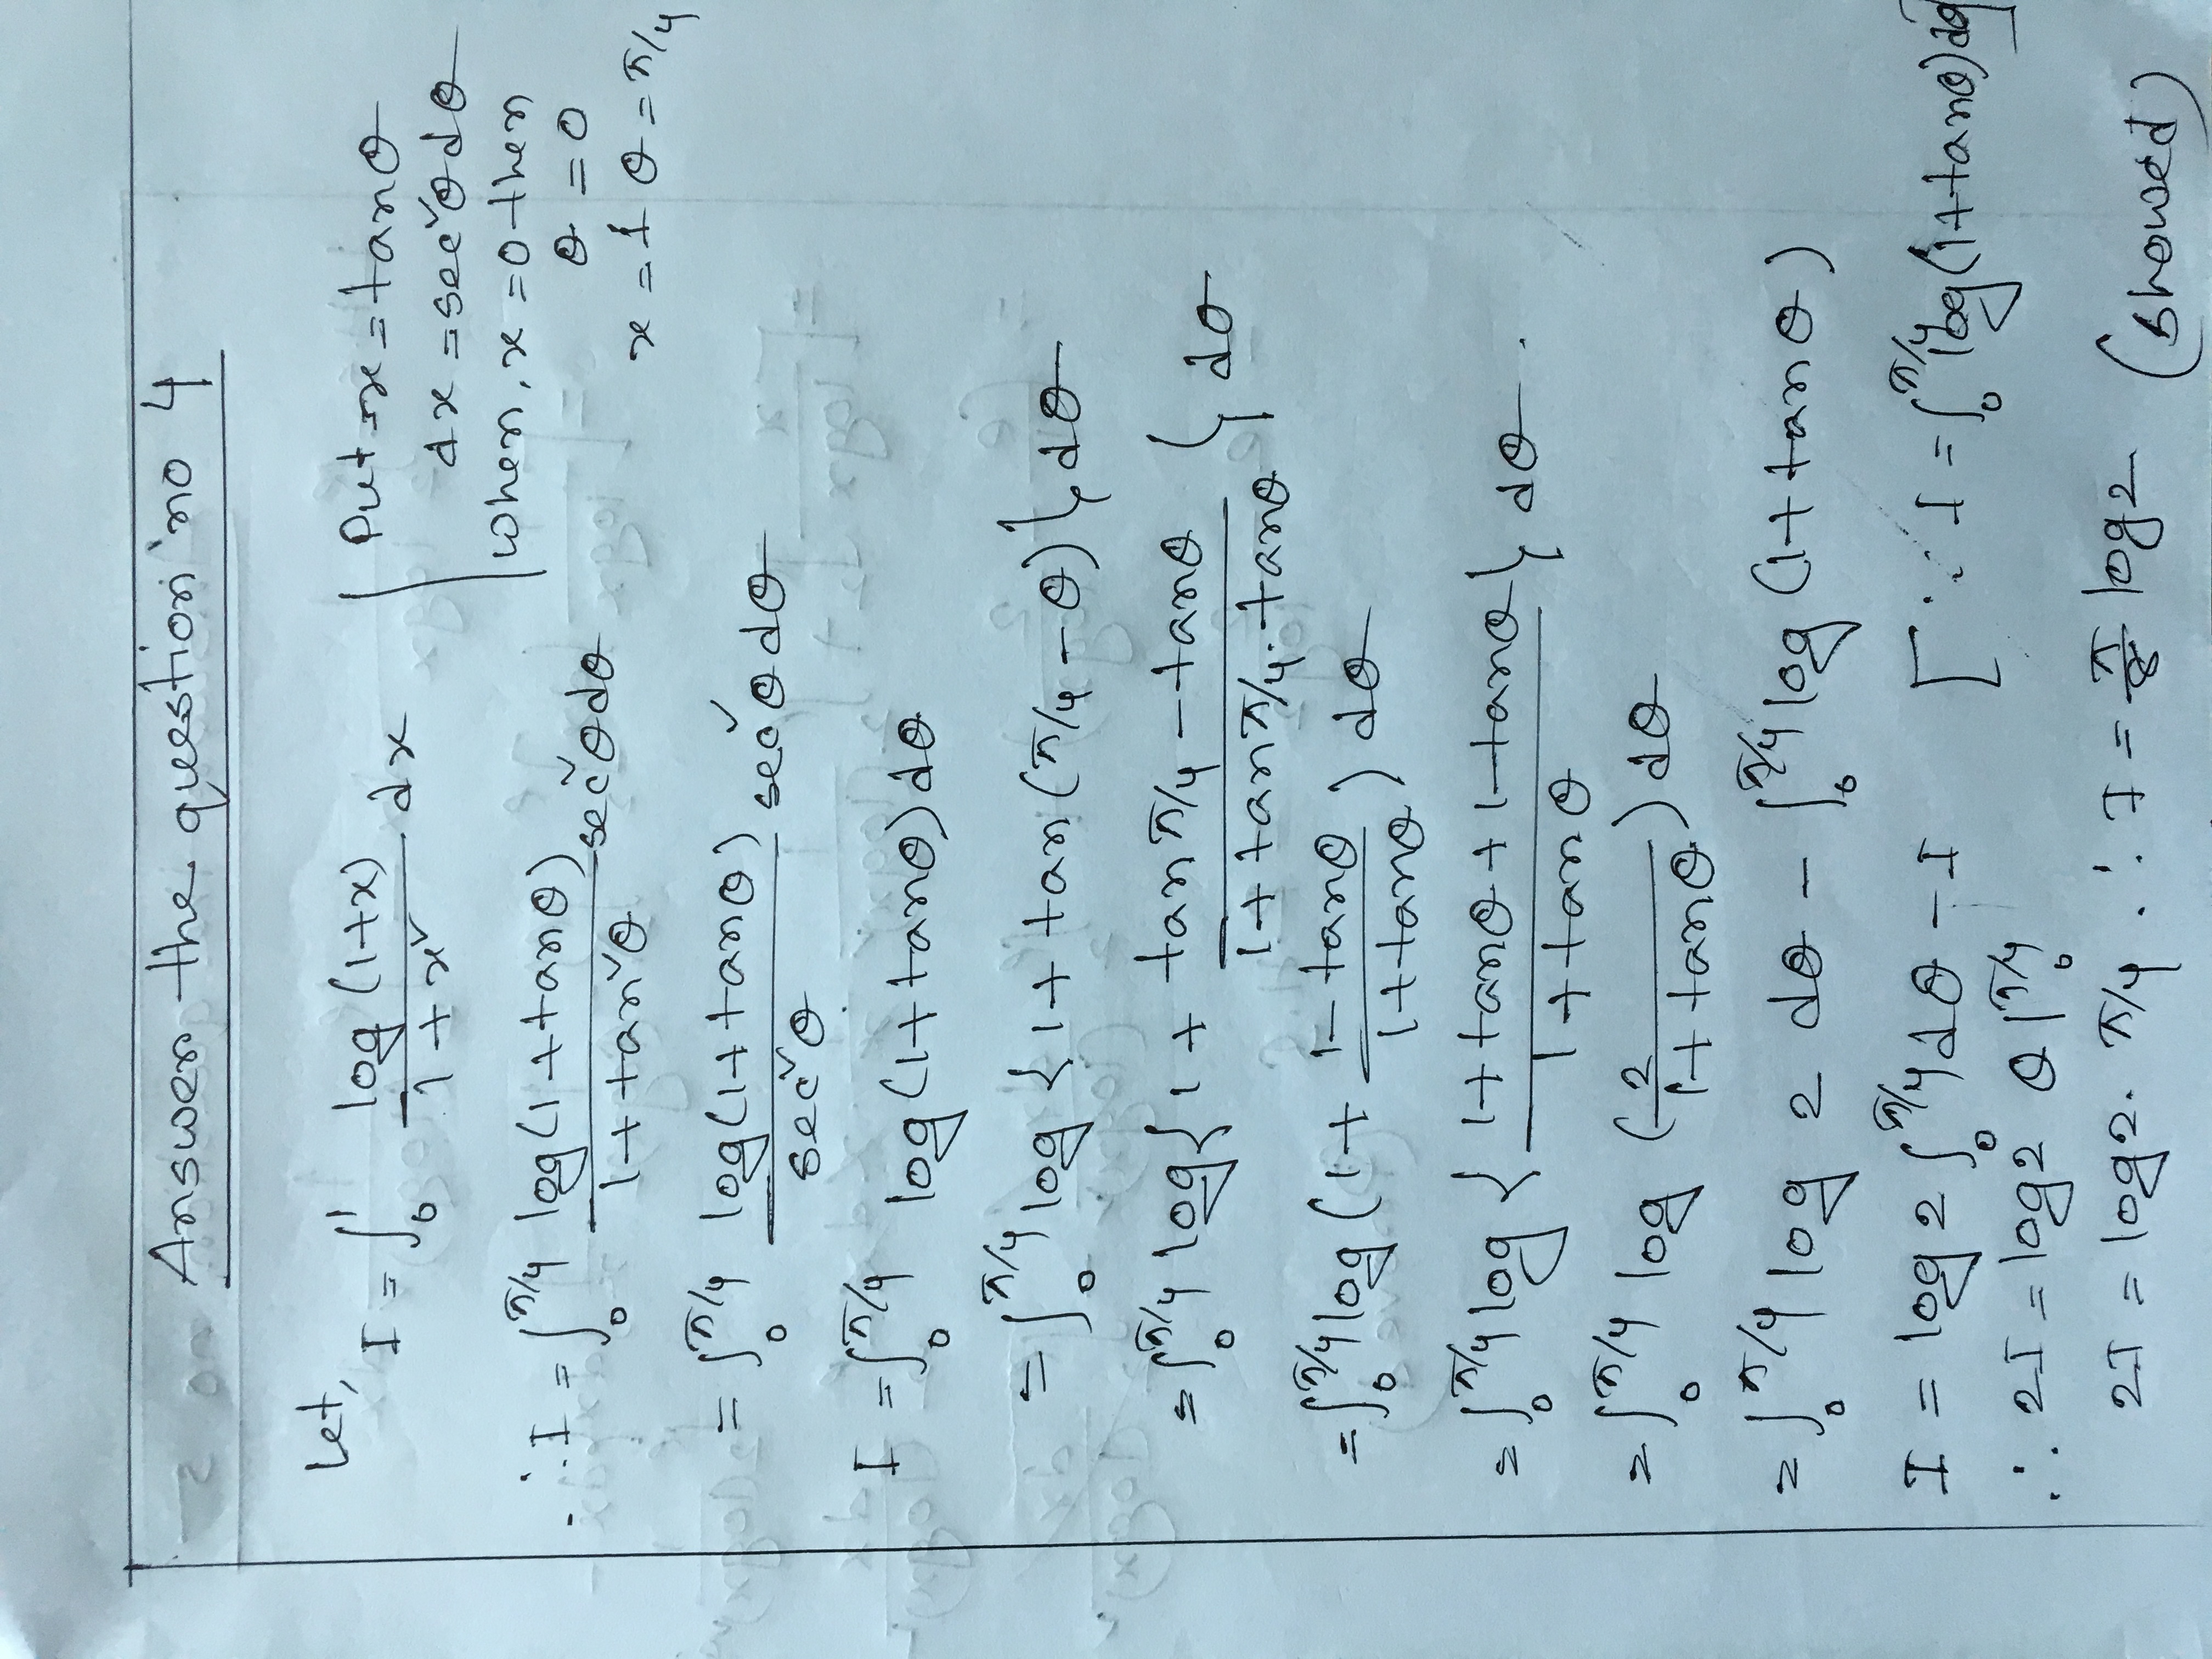 Answer the question no 4
Let,
I = ∫₀¹ log(1+x)/(1+x²) dx
Put x = tanθ
dx = sec²θdθ
When, x = 0 then
θ = 0
x = 1 θ = π/4
∴ I = ∫₀^π/4 log(1+tanθ)/(1+tan²θ) sec²θdθ
= ∫₀^π/4 log(1+tanθ)/sec²θ sec²θdθ
I = ∫₀^π/4 log(1+tanθ)dθ
= ∫₀^π/4 log{1+tan(π/4-θ)}dθ
= ∫₀^π/4 log{1+(tanπ/4-tanθ)/(1+tanπ/4.tanθ)}dθ
= ∫₀^π/4 log(1+(1-tanθ)/(1+tanθ))dθ
= ∫₀^π/4 log{(1+tanθ+1-tanθ)/(1+tanθ)}dθ.
= ∫₀^π/4 log(2/(1+tanθ))dθ
= ∫₀^π/4 log 2 dθ - ∫₀^π/4 log(1+tanθ)
I = log2 ∫₀^π/4 dθ - I [∵ I = ∫₀^π/4 log(1+tanθ)dθ]
∴ 2I = log2 θ|₀^π/4
2I = log2. π/4 ∴ I = π/8 log2 (showed)